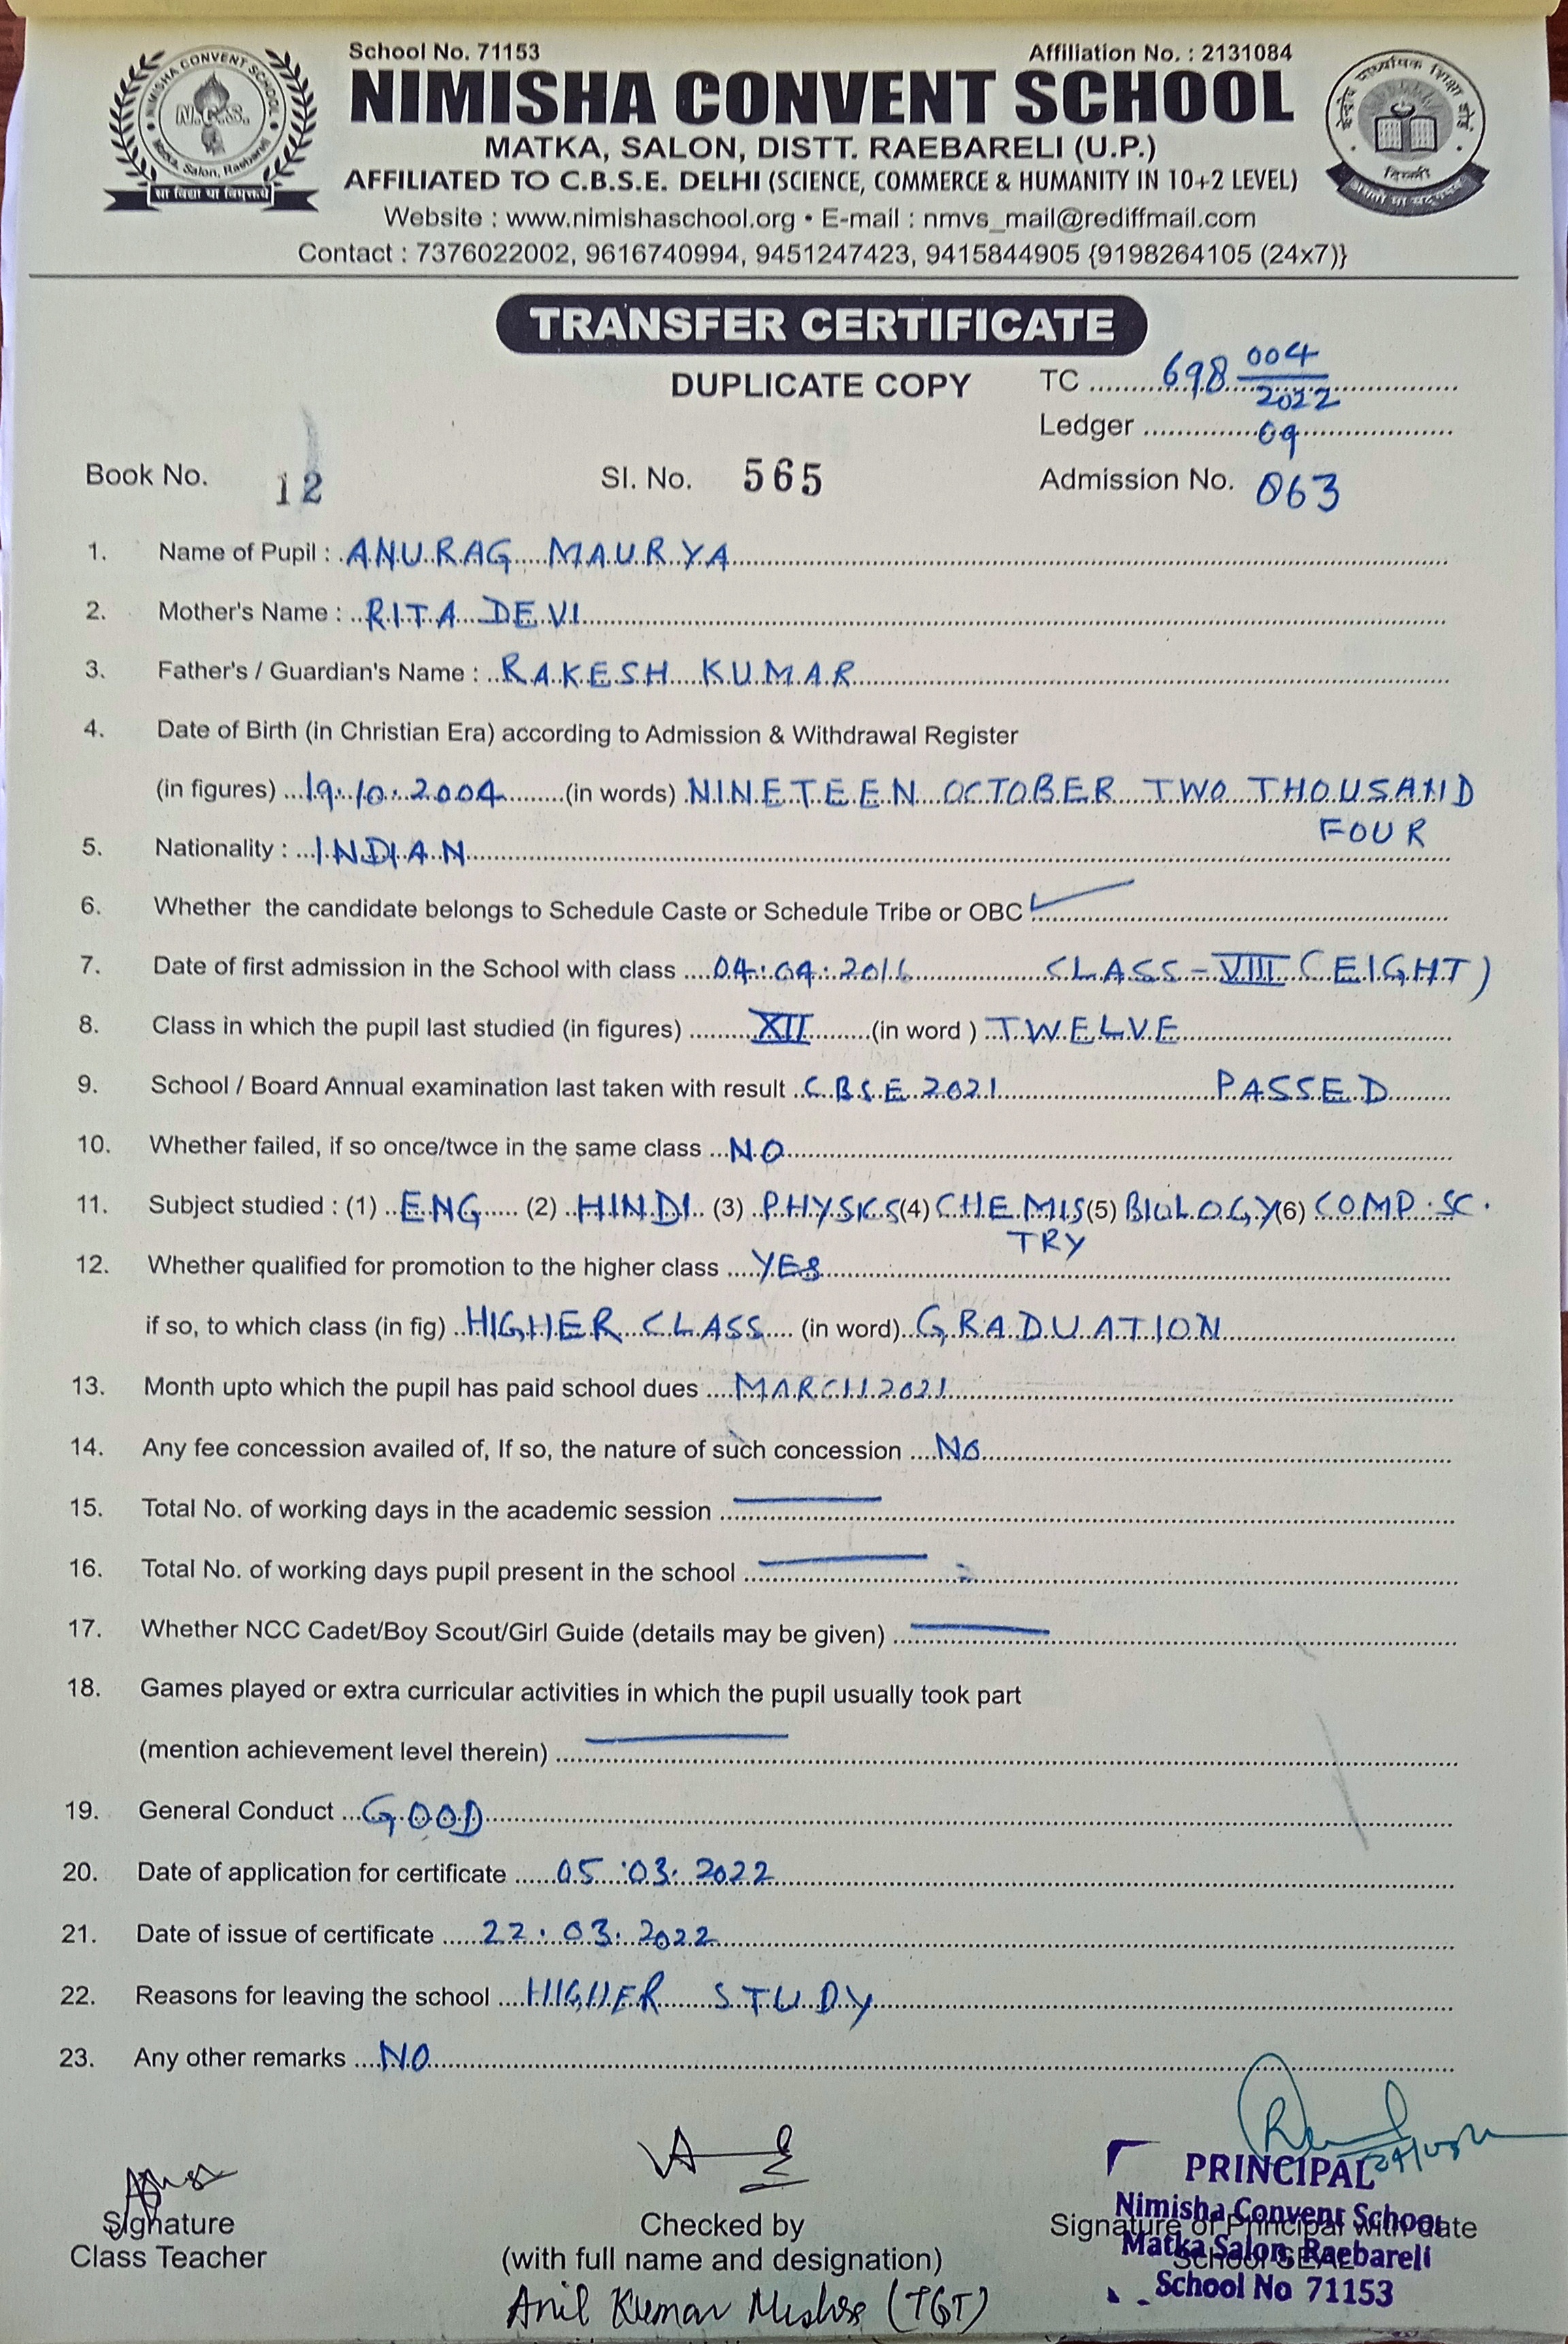 School No. 71153 Affiliation No. : 2131084
NIMISHA CONVENT SCHOOL
MATKA, SALON, DISTT. RAEBARELI (U.P.)
AFFILIATED TO C.B.S.E. DELHI (SCIENCE, COMMERCE & HUMANITY IN 10+2 LEVEL)
Website : www.nimishaschool.org • E-mail : nmvs_mail@rediffmail.com
Contact : 7376022002, 9616740994, 9451247423, 9415844905 {9198264105 (24x7)}
NIMISHA CONVENT SCHOOL
N.C.S.
Salon, Raebareli
सा विद्या या विमुक्तये
केन्द्रीय माध्यमिक शिक्षा बोर्ड
दिल्ली
असतो मा सद्गमय
TRANSFER CERTIFICATE
DUPLICATE COPY
TC 698 004/2022
Ledger 09
Book No. 12 Sl. No. 565 Admission No. 063
1. Name of Pupil : ANURAG MAURYA
2. Mother's Name : RITA DEVI
3. Father's / Guardian's Name : RAKESH KUMAR
4. Date of Birth (in Christian Era) according to Admission & Withdrawal Register
(in figures) 19.10.2004 (in words) NINETEEN OCTOBER TWO THOUSAND
FOUR
5. Nationality : INDIAN
6. Whether the candidate belongs to Schedule Caste or Schedule Tribe or OBC ✓
7. Date of first admission in the School with class 04.04.2016 CLASS - VIII (EIGHT)
8. Class in which the pupil last studied (in figures) XII (in word ) TWELVE
9. School / Board Annual examination last taken with result C.B.S.E 2021 PASSED
10. Whether failed, if so once/twce in the same class NO
11. Subject studied : (1) ENG (2) HINDI (3) PHYSICS (4) CHEMIS (5) BIOLOGY (6) COMP. SC.
TRY
12. Whether qualified for promotion to the higher class YES
if so, to which class (in fig) HIGHER CLASS (in word) GRADUATION
13. Month upto which the pupil has paid school dues MARCH 2021
14. Any fee concession availed of, If so, the nature of such concession NO
15. Total No. of working days in the academic session
16. Total No. of working days pupil present in the school
17. Whether NCC Cadet/Boy Scout/Girl Guide (details may be given)
18. Games played or extra curricular activities in which the pupil usually took part
(mention achievement level therein)
19. General Conduct GOOD
20. Date of application for certificate 05.03.2022
21. Date of issue of certificate 22.03.2022
22. Reasons for leaving the school HIGHER STUDY
23. Any other remarks NO
Signature
Class Teacher
Checked by
(with full name and designation)
Anil Kumar Mishra (TGT)
Signature of Principal with date
School SEAL
PRINCIPAL
Nimisha Convent School
Matka Salon, Raebareli
School No 71153